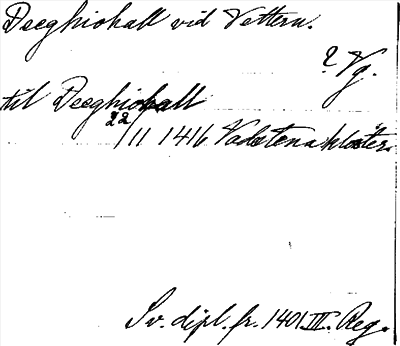 Deeghiohall vid Vettern.
? Vg.
til Deeghiohall
22/11 1416 Vadstena kloster.
Sv. dipl. fr. 1401. III. Reg.